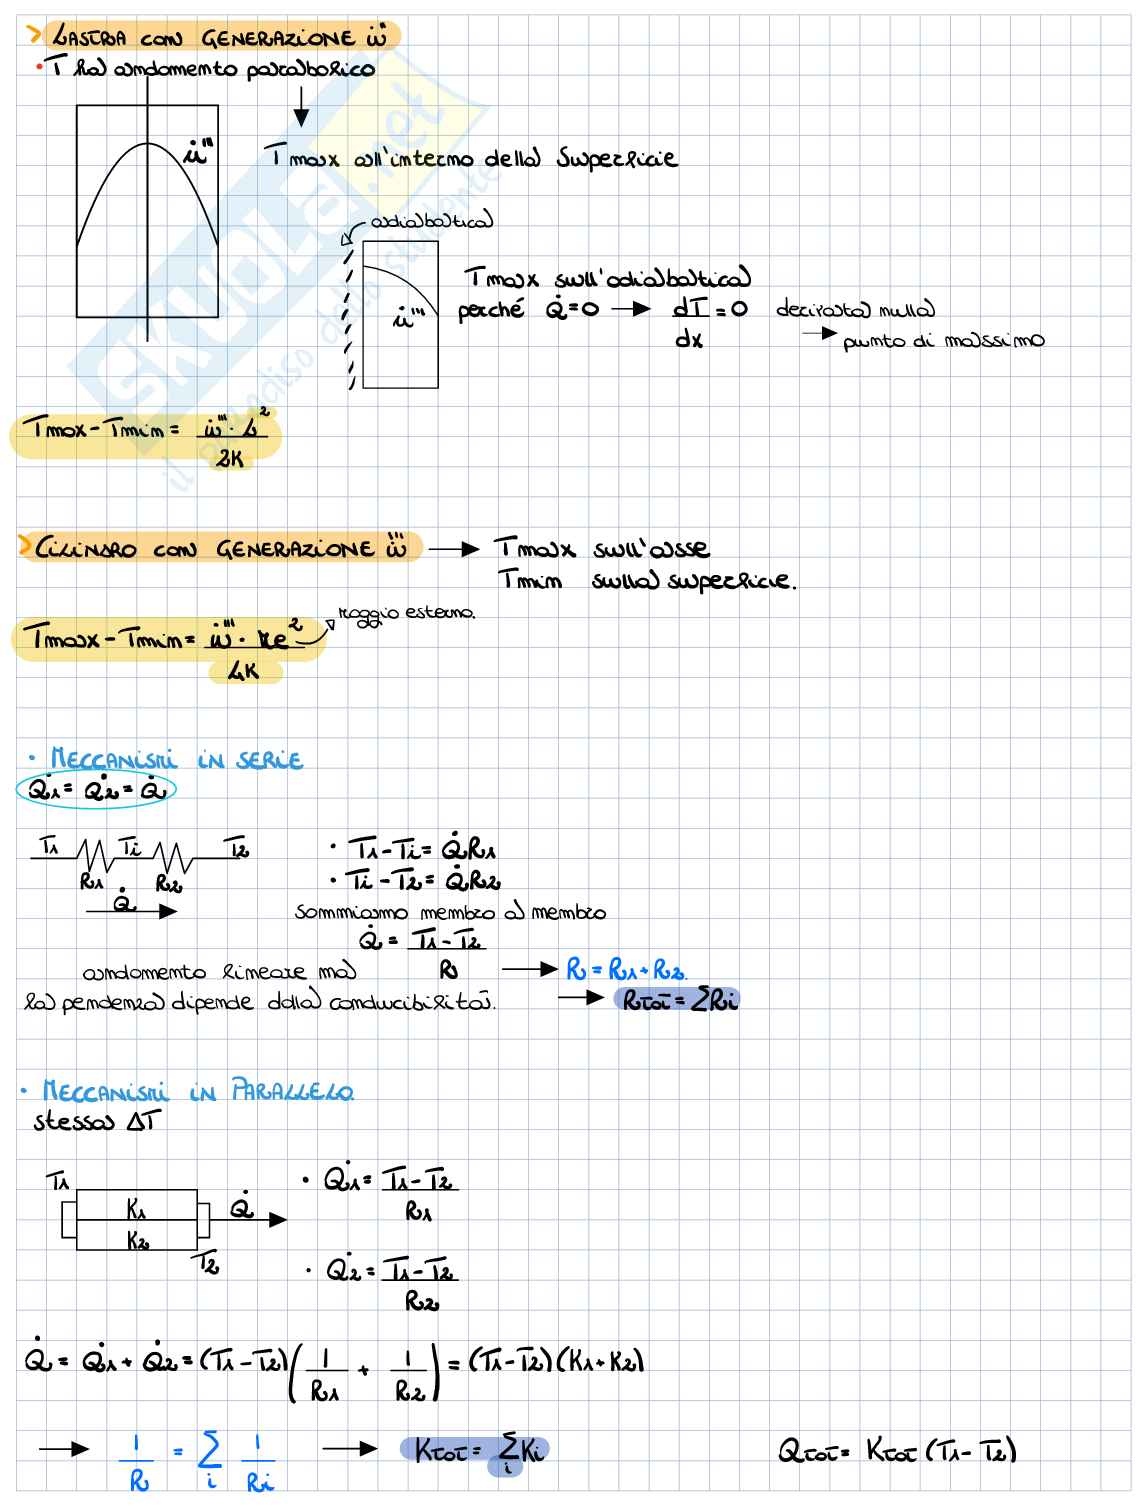 > LASTRA con GENERAZIONE ẇ'''
• T ha andamento parabolico
u̇'''
Tmax all'interno della Superficie
adiabatica
Tmax sull'adiabatica
perché Q̇=0 → dT/dx = 0 derivata nulla
→ punto di massimo
u̇'''
Tmax - Tmin = ẇ'''· L² / 2K
> CILINDRO con GENERAZIONE ẇ''' → Tmax sull'asse
Tmin sulla superficie.
raggio esterno.
Tmax - Tmin = ẇ'''· re² / 4K
• MECCANISMI IN SERIE
Q̇1 = Q̇2 = Q̇
T1 Ti T2
R1 R2
Q̇
• T1-Ti = Q̇R1
• Ti-T2 = Q̇R2
Sommiamo membro a membro
Q̇ = T1-T2 / R → R = R1+R2.
andamento lineare ma
la pendenza dipende dalla conducibilità. → RTOT = ΣRi
• MECCANISMI IN PARALLELO
stessa ΔT
T1
K1
K2
Q̇
T2
• Q̇1 = T1-T2 / R1
• Q̇2 = T1-T2 / R2
Q̇ = Q̇1 + Q̇2 = (T1-T2)(1/R1 + 1/R2) = (T1-T2)(K1+K2)
→ 1/R = Σi 1/Ri → KTOT = Σi Ki QTOT = KTOT (T1-T2)
SKUOLA.net
il paradiso dello studente